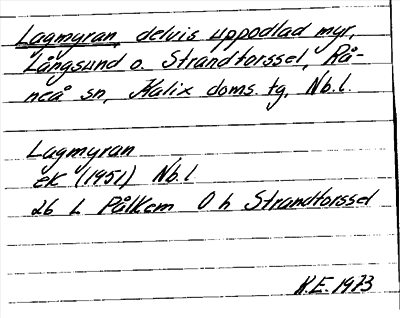 Lagmyran, delvis uppodlad myr,
Långsund o. Strandtorssel, Rå-
neå sn, Kalix doms.tg, Nb.l.
Lagmyran
EK (1951) Nb.l
26 L Pålkem 0 h Strandtorssel
K.E. 1973